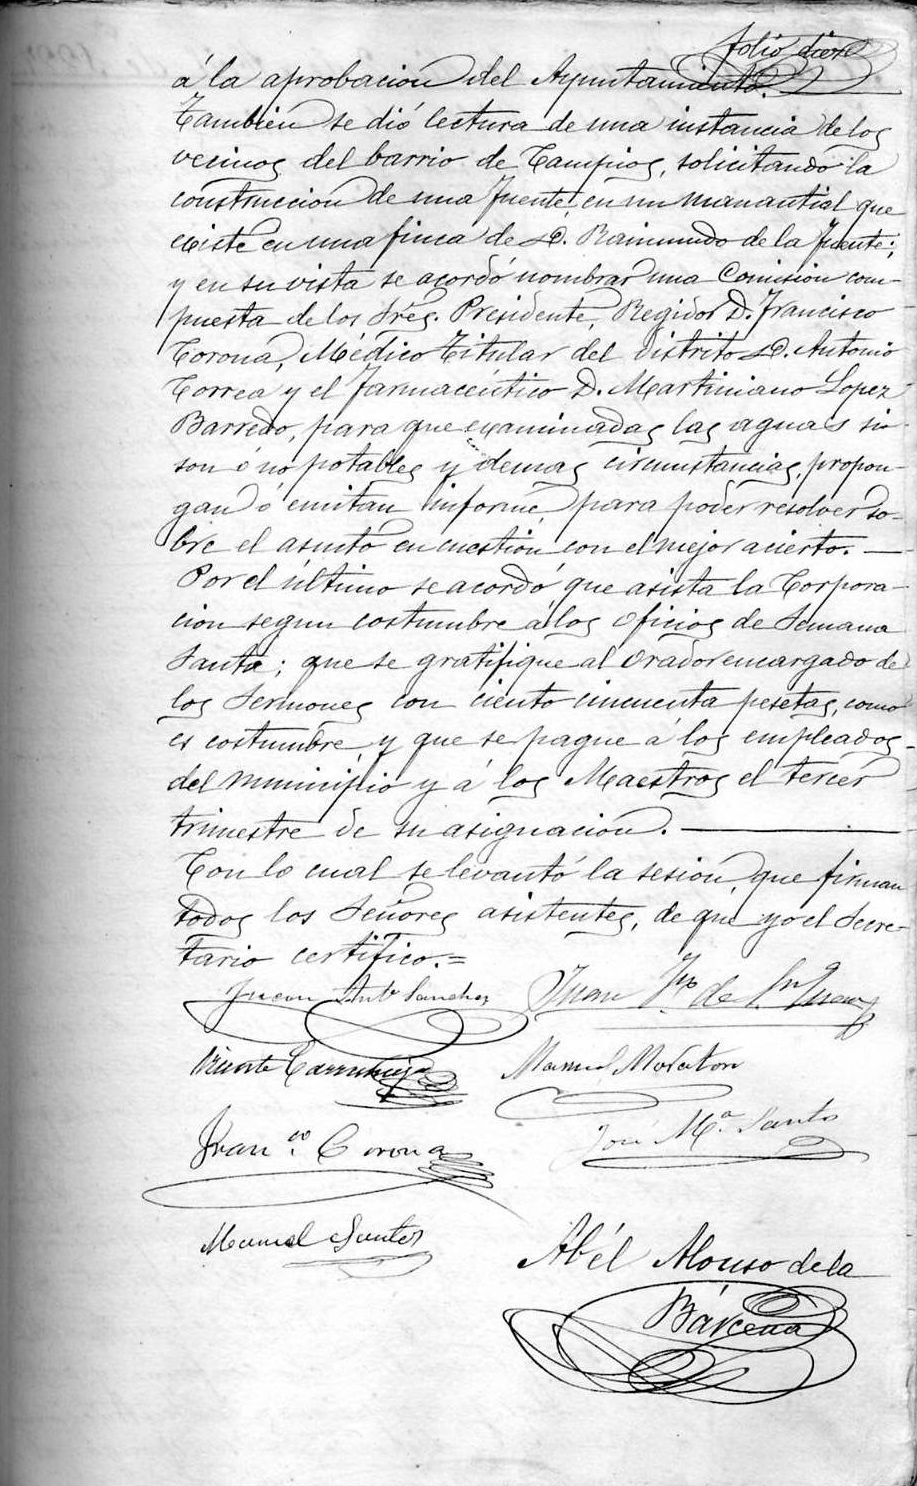 folio diez
á la aprobacion del Ayuntamiento.
Tambien se dió lectura de una instancia de los
vecinos del barrio de Campios, solicitando la
construccion de una fuente, en un manantial que
existe en una finca de D. Raimundo de la Fuente;
y en su vista se acordó nombrar una Comision com-
puesta de los Srés. Presidente, Regidor D. Francisco
Corona, Médico Titular del distrito D. Antonio
Correa y el Farmacéutico D. Martiniano Lopez
Barredo, para que examinadas las aguas si
son ó no potables y demas circunstancias, propon-
gan ó emitan informe, para poder resolver so-
bre el asunto en cuestion con el mejor acierto.
Por el último se acordó que asista la Corpora-
cion segun costumbre á los oficios de Semana
Santa; que se gratifique al Orador encargado de
los Sermones con ciento cincuenta pesetas, como
es costumbre y que se pague á los empleados
del municipio y á los Maestros el tercer
trimestre de su asignacion.
Con lo cual se levantó la sesion, que firman
todos los Señores asistentes, de que yo el Secre-
tario certifico.=
Juan Antº Sanchez Juan de
Vicente Manuel Moraton
Franco. Corona José Mª. Santos
Manuel Santos
Abél Alonso de la
Bárcena